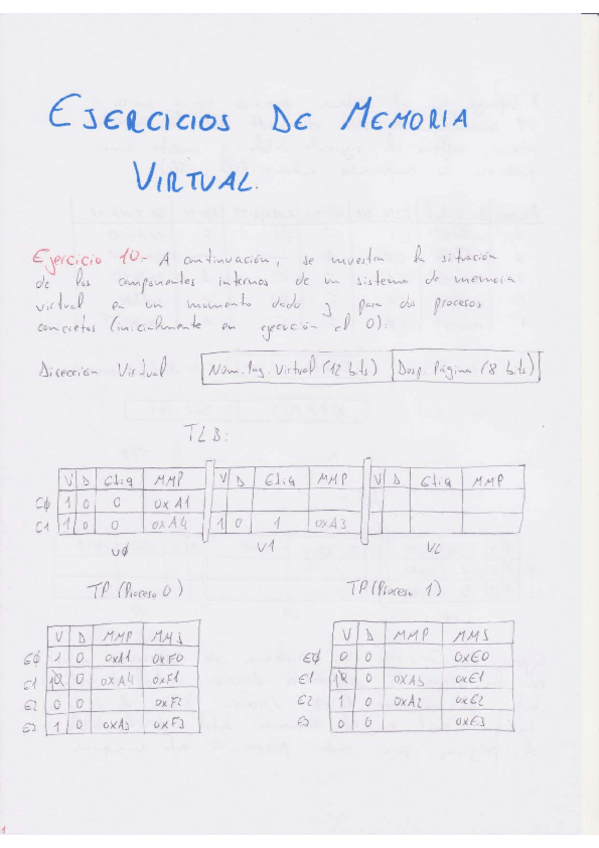 EJERCICIOS DE MEMORIA
VIRTUAL.
Ejercicio 10.- A continuación, se muestra la situación
de los componentes internos de un sistema de memoria
virtual en un momento dado y para dos procesos
concretos (inicialmente en ejecución el 0):
Dirección Virtual Núm. Pag. Virtual (12 bits) Desp. Página (8 bits)
TLB:
V D Etiq MMP V D Etiq MMP V D Etiq MMP
C0 1 0 0 0xA1
C1 1 0 0 0xA4 1 0 1 0xA3
V0 V1 V2
TP (Proceso 0) TP (Proceso 1)
V D MMP MMS V D MMP MMS
E0 1 0 0xA1 0xF0 E0 0 0 0xE0
E1 0 0xA4 0xF1 E1 0 0xA5 0xE1
E2 0 0 0xF2 E2 1 0 0xA2 0xE2
E3 1 0 0xA3 0xF3 E3 0 0 0xE3
1